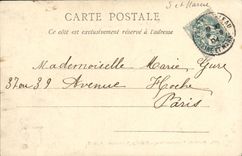 S et Marne
CARTE POSTALE
Ce côté est exclusivement réservé à l'adresse
Mademoiselle Marie
37 ou 39 Avenue Hoche
Paris